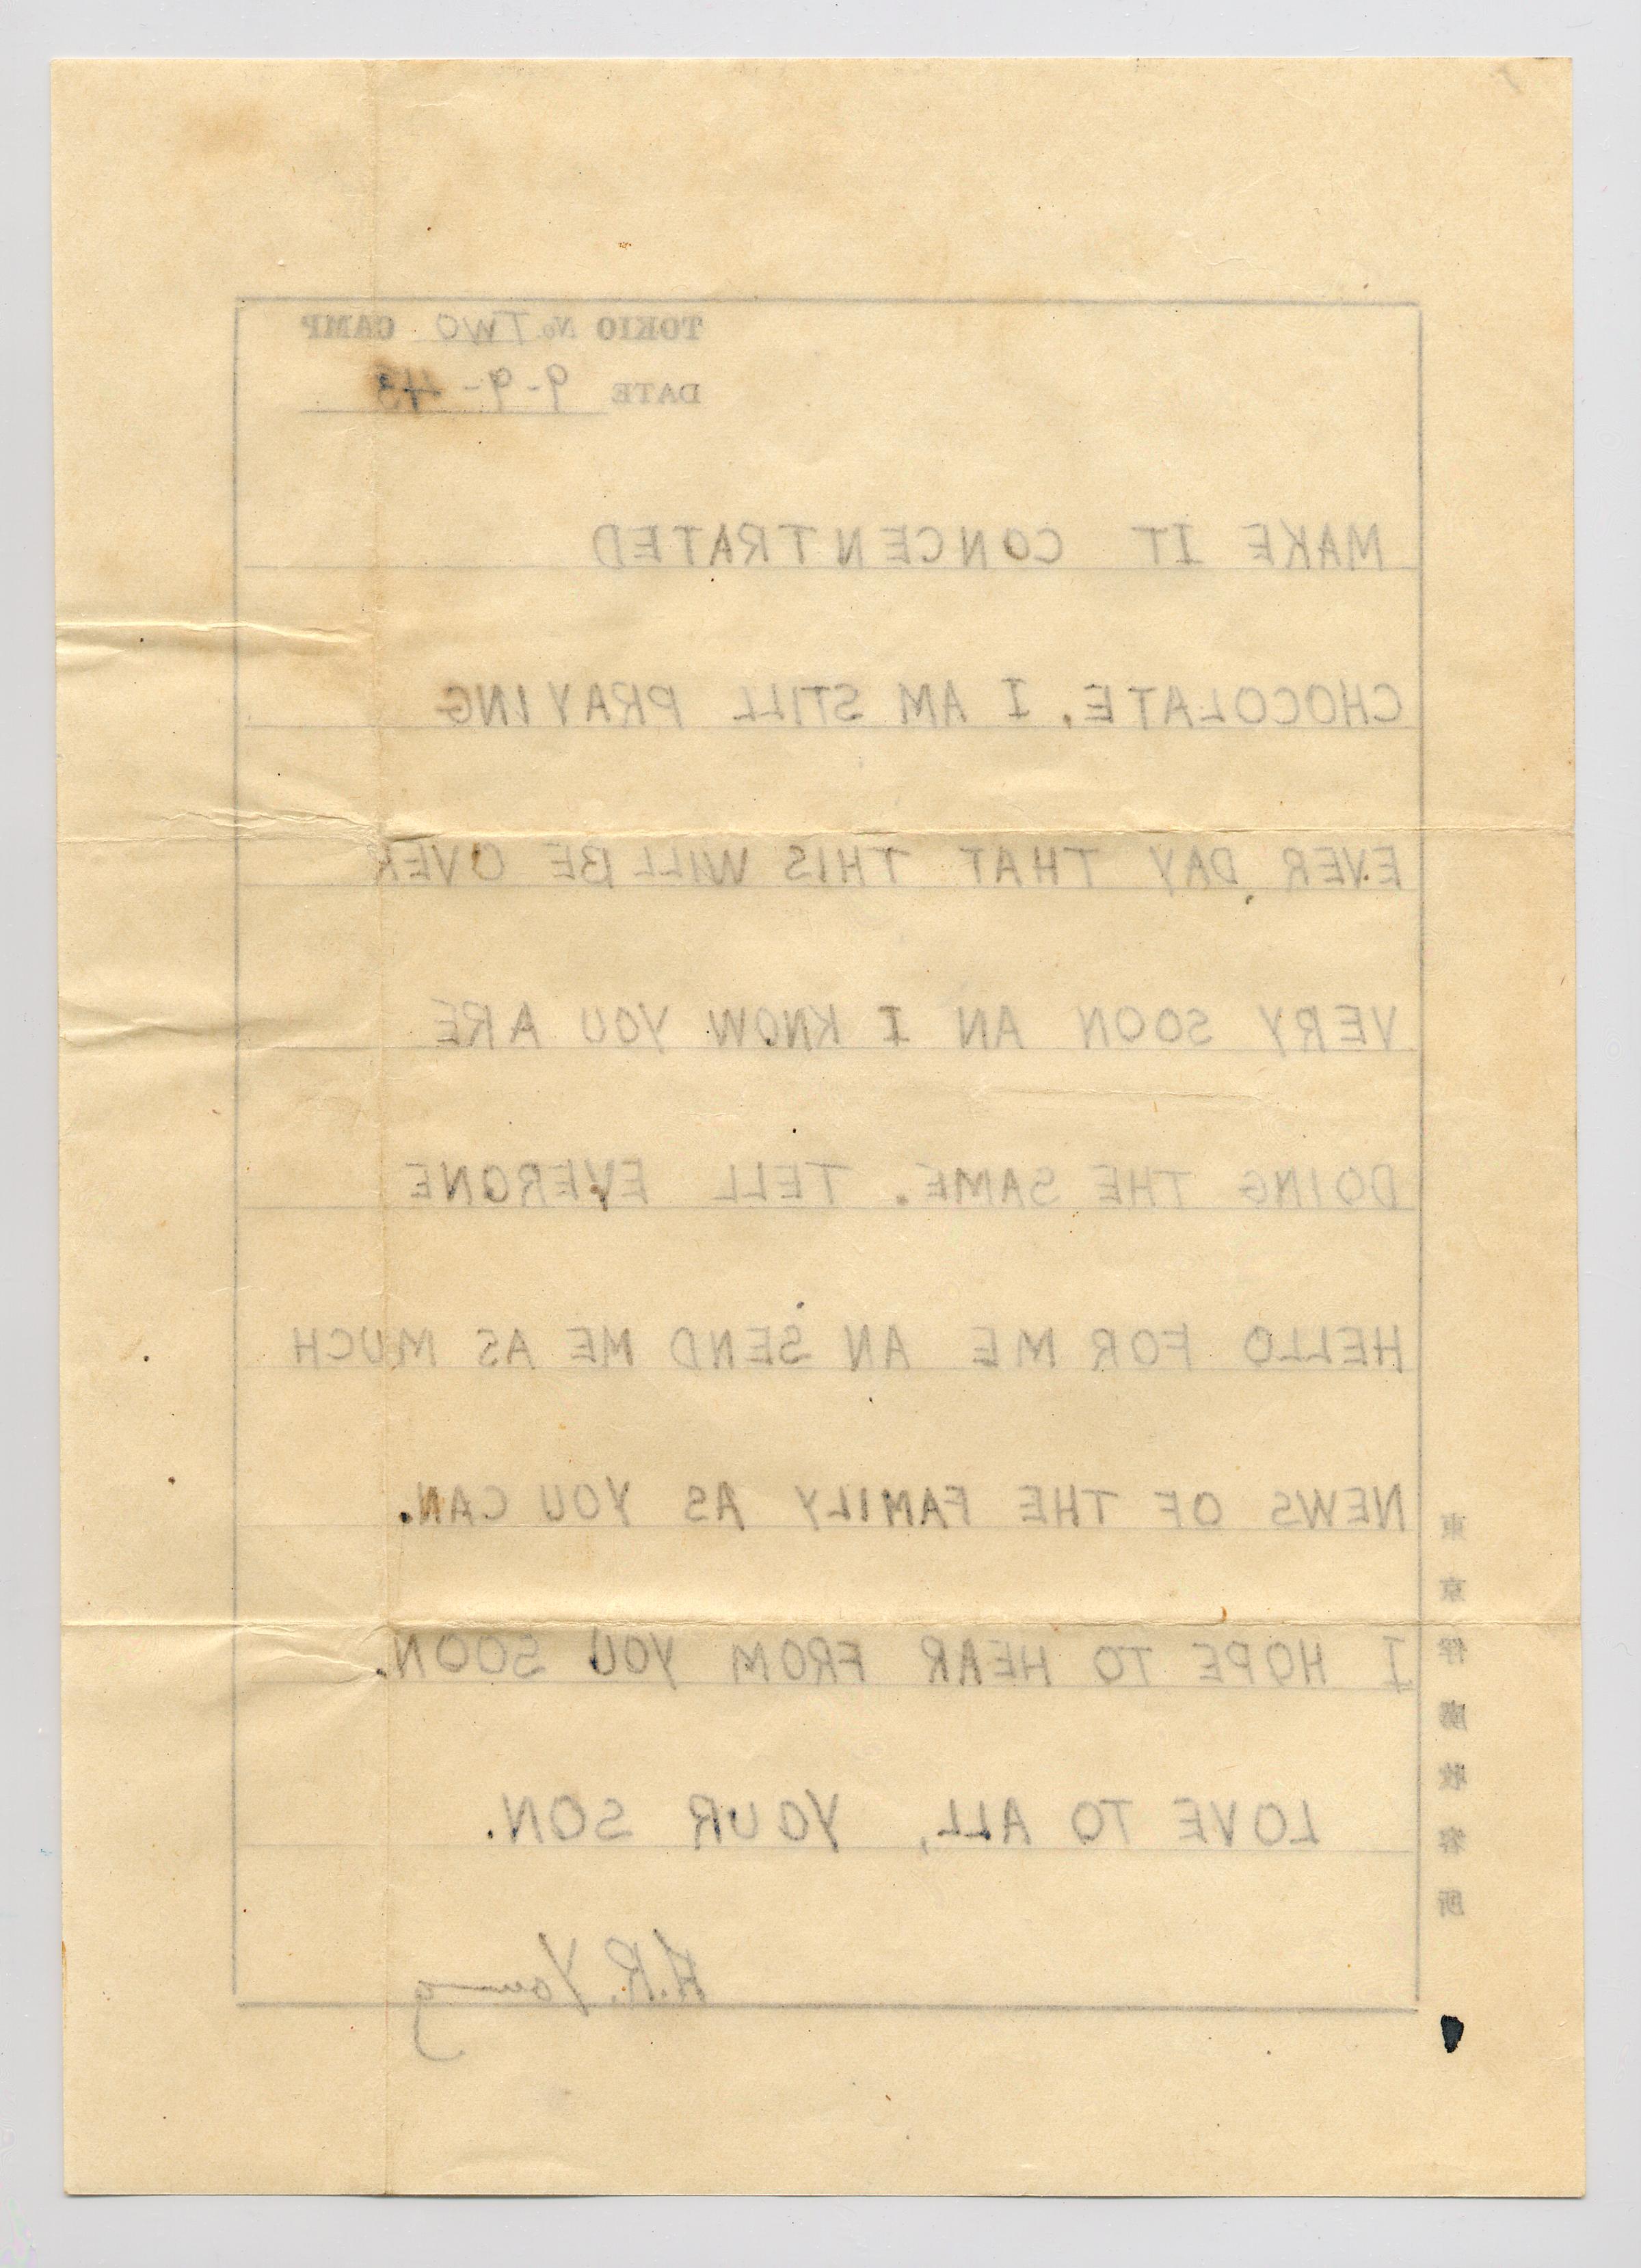 TOKIO No TWO CAMP
DATE 9-9-43
MAKE IT CONCENTRATED
CHOCOLATE. I AM STILL PRAYING
EVER DAY THAT THIS WILL BE OVER
VERY SOON AN I KNOW YOU ARE
DOING THE SAME. TELL EVERONE
HELLO FOR ME AN SEND ME AS MUCH
NEWS OF THE FAMILY AS YOU CAN.
I HOPE TO HEAR FROM YOU SOON.
LOVE TO ALL, YOUR SON.
H.R. Young
東京俘虜收容所